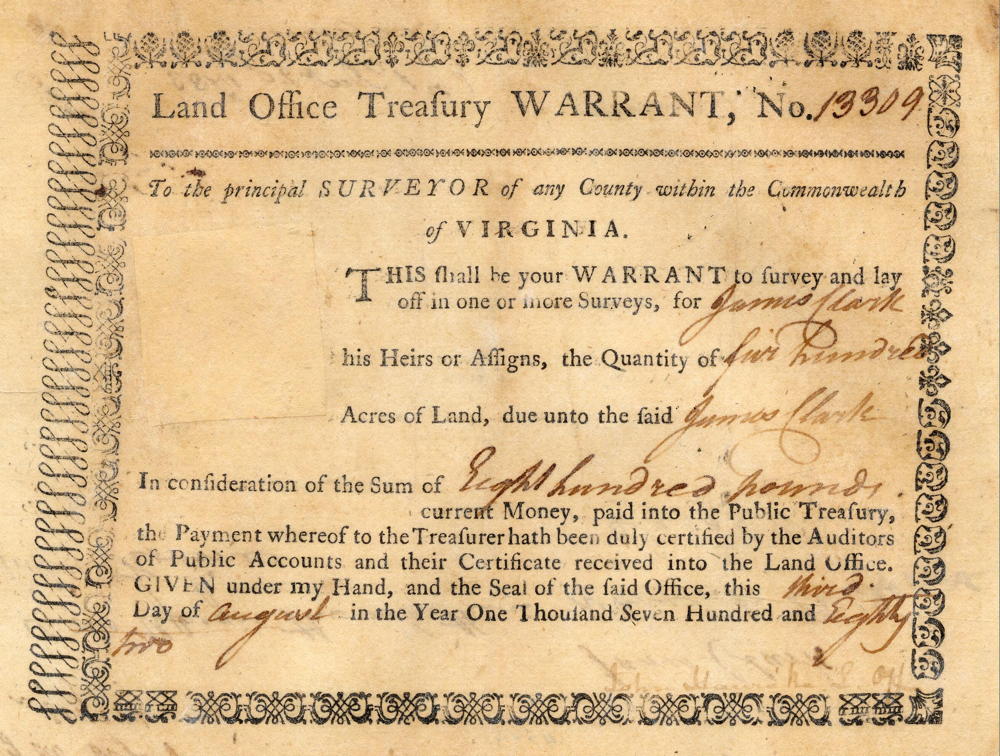 Land Office Treaſury WARRANT, No. 13309.
To the principal SURVEYOR of any County within the Commonwealth
of VIRGINIA.
THIS ſhall be your WARRANT to ſurvey and lay
off in one or more Surveys, for James Clark
his Heirs or Aſſigns, the Quantity of hundred
Acres of Land, due unto the ſaid James Clark
In conſideration of the Sum of Eight hundred pounds.
current Money, paid into the Public Treaſury,
the Payment whereof to the Treaſurer hath been duly certified by the Auditors
of Public Accounts and their Certificate received into the Land Office.
GIVEN under my Hand, and the Seal of the ſaid Office, this third
Day of august in the Year One Thouſand Seven Hundred and Eighty
two